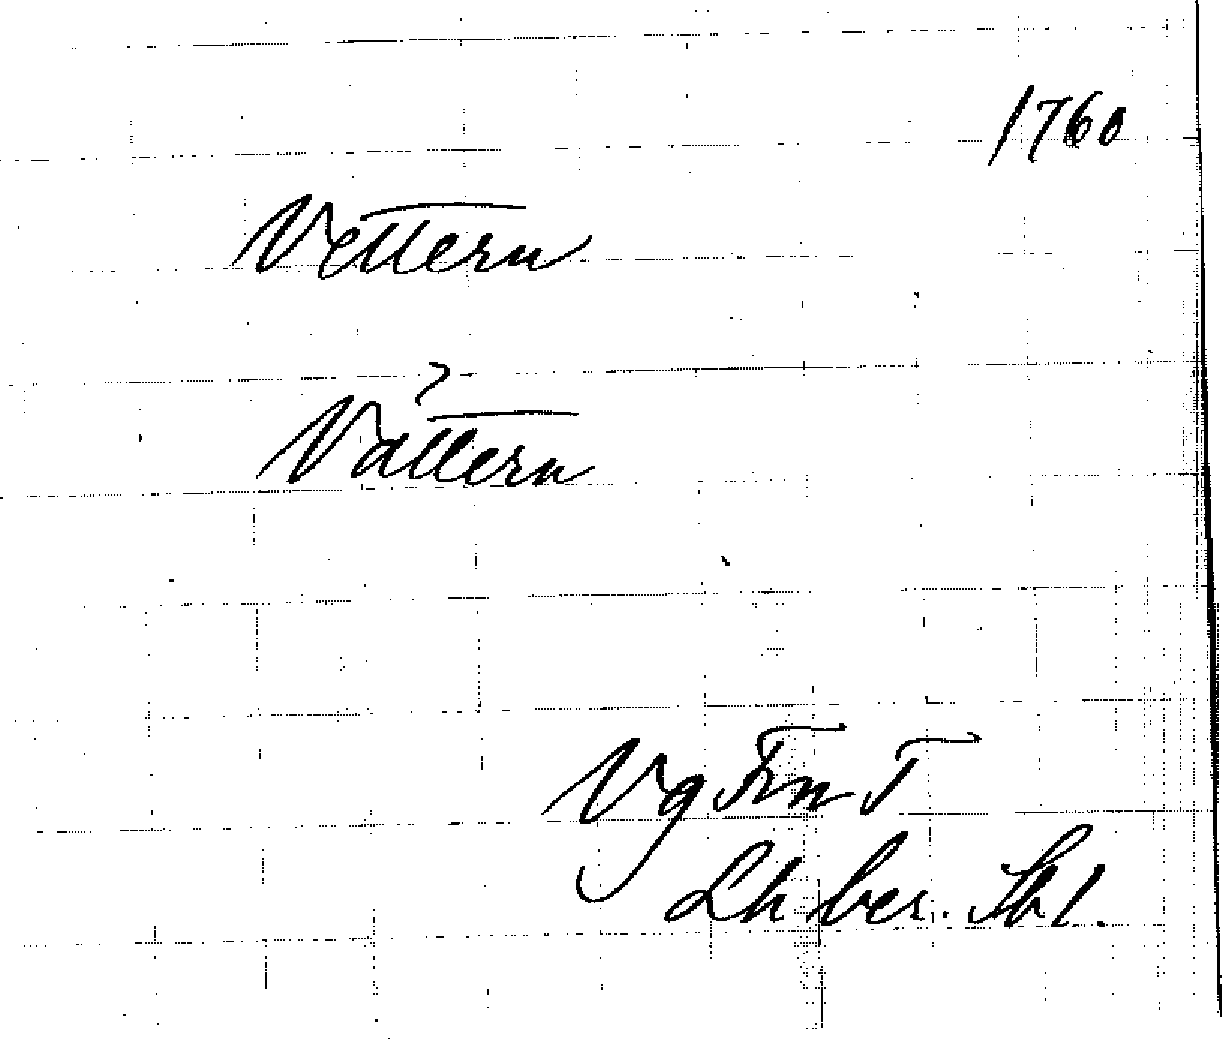 1760
Vettern
?
Vättern
Vg Frn T
Lh ber. Sbl.